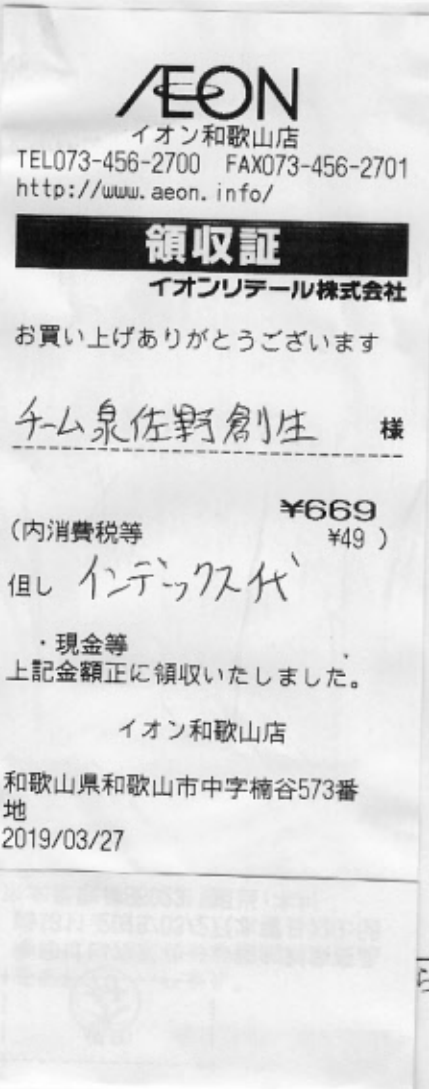 ÆON
イオン和歌山店
TEL073-456-2700 FAX073-456-2701
http://www.aeon.info/
領収証
イオンリテール株式会社
お買い上げありがとうございます
チーム泉佐野創生 様
¥669
(内消費税等 ¥49 )
但し インデックス代
・現金等
上記金額正に領収いたしました。
イオン和歌山店
和歌山県和歌山市中字楠谷573番
地
2019/03/27